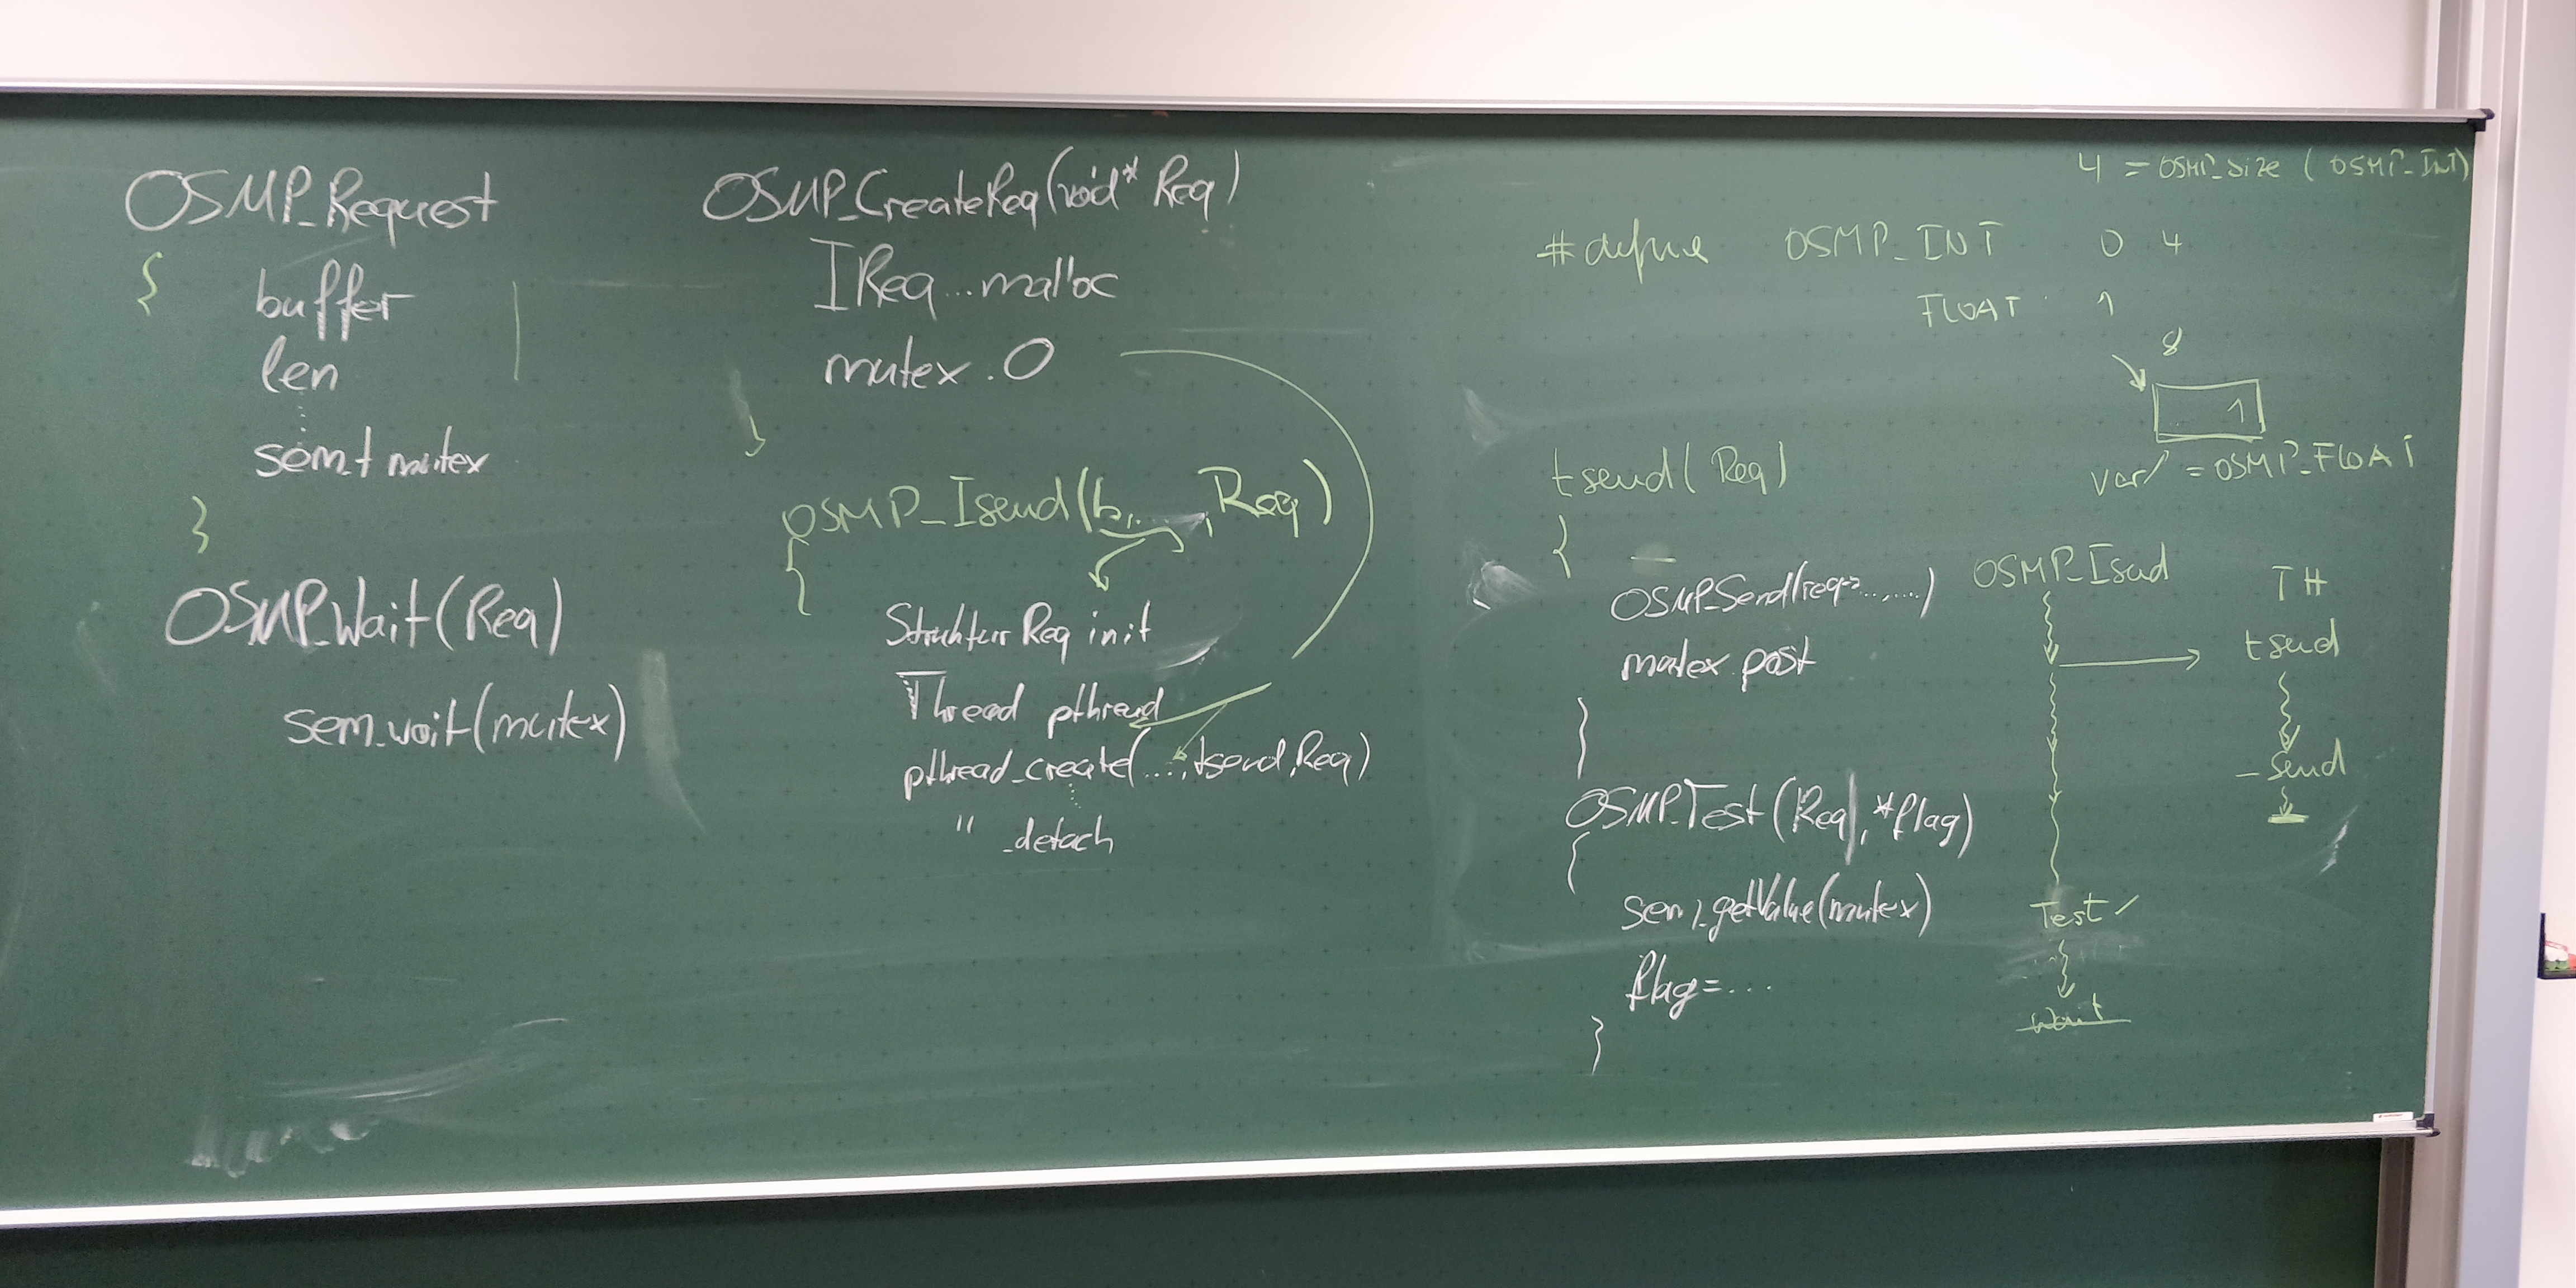 OSMP_Request
{
buffer
len
sem_t mutex
}
OSMP_Wait(Req)
sem_wait(mutex)
OSMP_CreateReq(void* Req)
IReq...malloc
mutex . 0
OSMP_Isend(b,...,Req)
{
Struktur Req init
Thread pthread
pthread_create(...,tsend,Req)
" _detach
4 = OSMP_size ( OSMP_INT)
#define OSMP_INT 0 4
FLOAT 1
8
1
var = OSMP_FLOAT
tsend( Req)
{
OSMP_Send(req->...,...)
mutex post
}
OSMP_Test(Req, *flag)
{
sem_getValue(mutex)
flag=...
}
OSMP_Isend
TH
tsend
_send
Test ✓
Wait